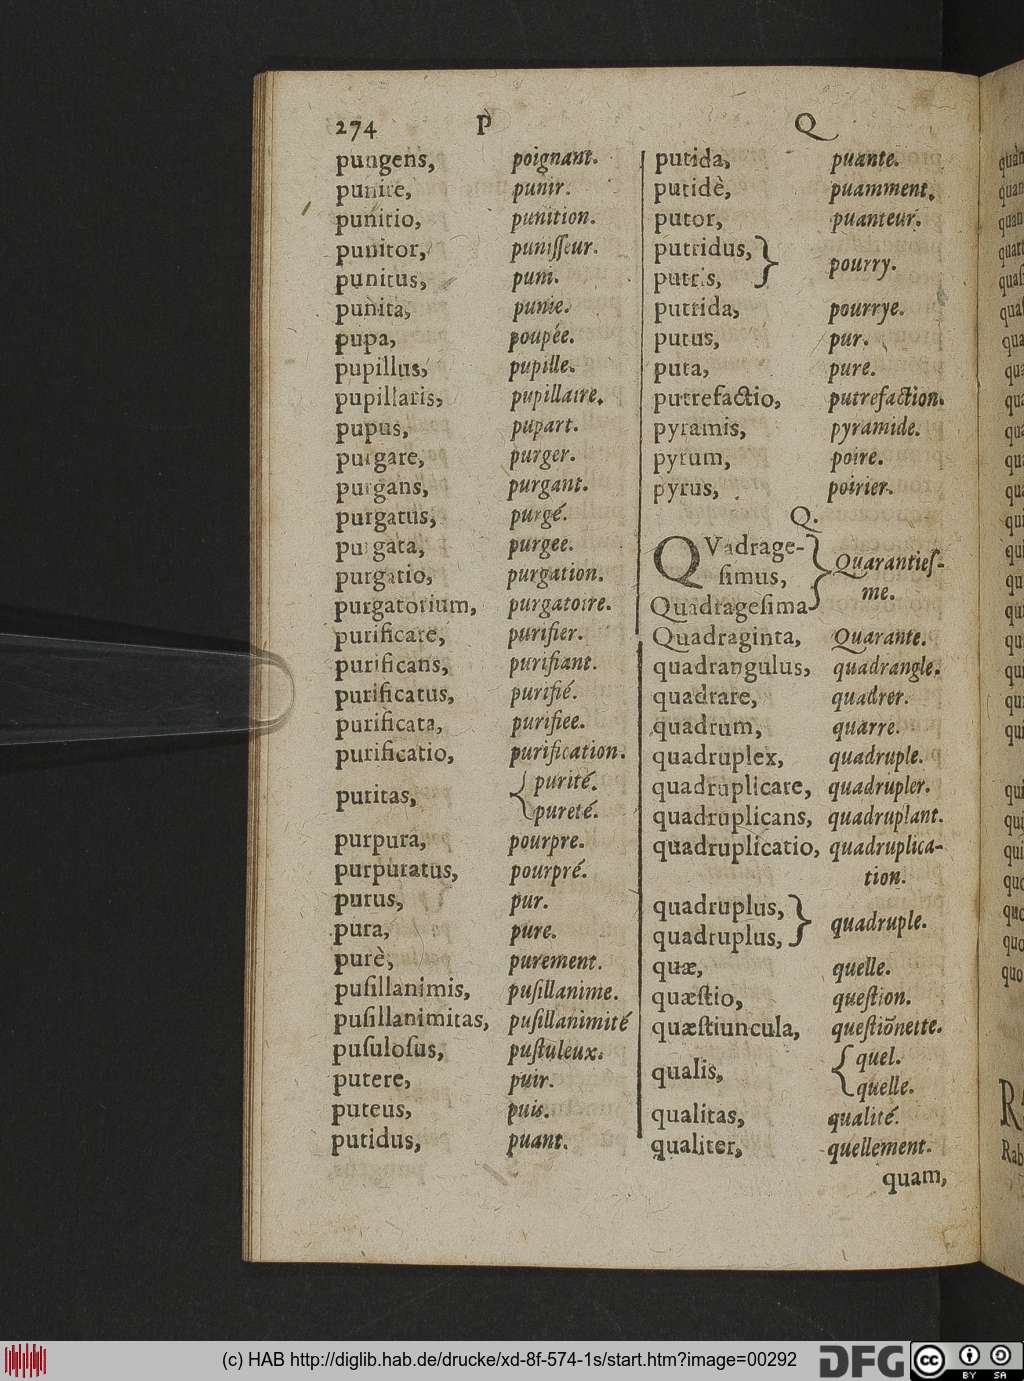 274 P Q
pungens, poignant.
punire, punir.
punitio, punition.
punitor, puniſſeur.
punitus, puni.
punita, punie.
pupa, poupée.
pupillus, pupille.
pupillaris, pupillaire.
pupus, pupart.
purgare, purger.
purgans, purgant.
purgatus, purgé.
purgata, purgee.
purgatio, purgation.
purgatorium, purgatoire.
purificare, purifier.
purificans, purifiant.
purificatus, purifié.
purificata, purifiee.
purificatio, purification.
puritas, { purité.
pureté.
purpura, pourpre.
purpuratus, pourpré.
purus, pur.
pura, pure.
purè, purement.
puſillanimis, puſillanime.
puſillanimitas, puſillanimité
puſuloſus, puſtuleux.
putere, puir.
puteus, puis.
putidus, puant.
putida, puante.
putidè, puamment.
putor, puanteur.
putridus, }
putris, pourry.
putrida, pourrye.
putus, pur.
puta, pure.
putrefactio, putrefaction.
pyramis, pyramide.
pyrum, poire.
pyrus, poirier.
Q.
QVadrage-
ſimus, } Quarantieſ-
Quadrageſima me.
Quadraginta, Quarante.
quadrangulus, quadrangle.
quadrare, quadrer.
quadrum, quarre.
quadruplex, quadruple.
quadruplicare, quadrupler.
quadruplicans, quadruplant.
quadruplicatio, quadruplica-
tion.
quadruplus, }
quadruplus, quadruple.
quæ, quelle.
quæſtio, queſtion.
quæſtiuncula, queſtiōnette.
qualis, { quel.
quelle.
qualitas, qualité.
qualiter, quellement.
quam,
(c) HAB http://diglib.hab.de/drucke/xd-8f-574-1s/start.htm?image=00292 DFG cc BY SA